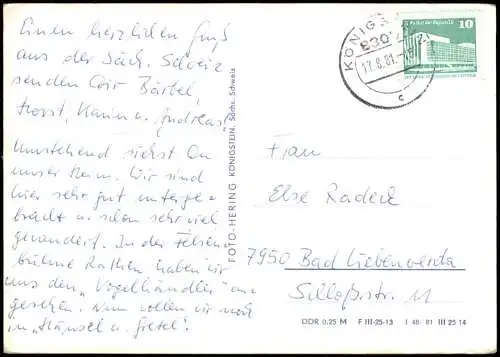 Einen herzlichen Gruß
aus der Sächs. Schweiz
senden Dir Bärbel,
Horst, Karin u. Andreas!
Umstehend siehst Du
unser Heim. Wir sind
hier sehr gut unterge-
bracht u. schon sehr viel
gewandert. In der Felsen-
bühne Rathen haben wir
uns den "Vogelhändler" an-
gesehen. Nun wollen wir noch
in "Hänsel u. Gretel".
FOTO-HERING KÖNIGSTEIN, Sächs. Schweiz
KÖNIGS
8305
17.8.81
c
10
Frau
Else Radeck
7950 Bad Liebenwerda
Schloßstr. 11
DDR 0,25 M F III-25-13 J 48- 81 III 25 14